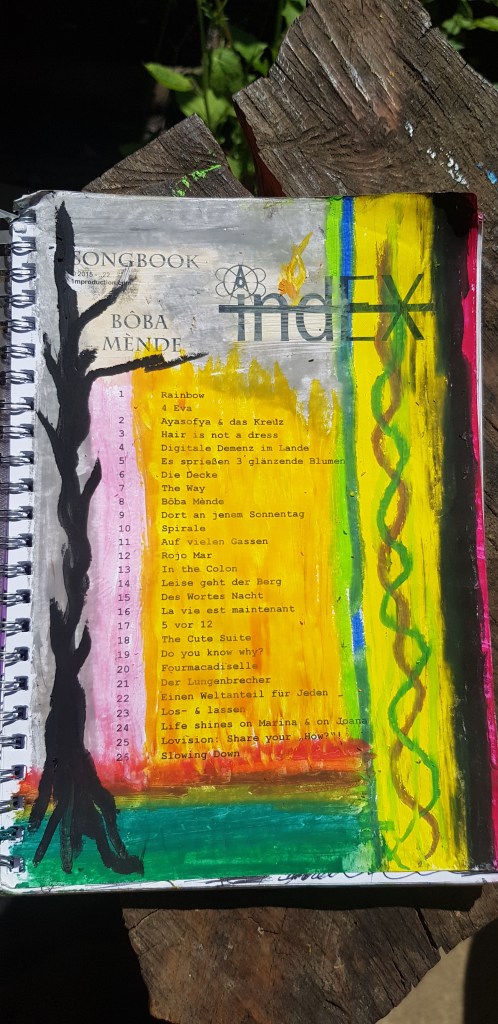 SONGBOOK
2015 - 22
BÔBA
MÈNDE
A
indEX
1 Rainbow
4 Eva
2 Ayasofya & das Kreuz
3 Hair is not a dress
4 Digitale Demenz im Lande
5 Es sprießen 3 glänzende Blumen
6 Die Decke
7 The Way
8 Bôba Mènde
9 Dort an jenem Sonnentag
10 Spirale
11 Auf vielen Gassen
12 Rojo Mar
13 In the Colon
14 Leise geht der Berg
15 Des Wortes Nacht
16 La vie est maintenant
17 5 vor 12
18 The Cute Suite
19 Do you know why?
20 Fourmacadiselle
21 Der Lungenbrecher
22 Einen Weltanteil für Jeden
23 Los- & lassen
24 Life shines on Marina & on Joana
25 Lovision: Share your „How?"!
26 Slowing Down